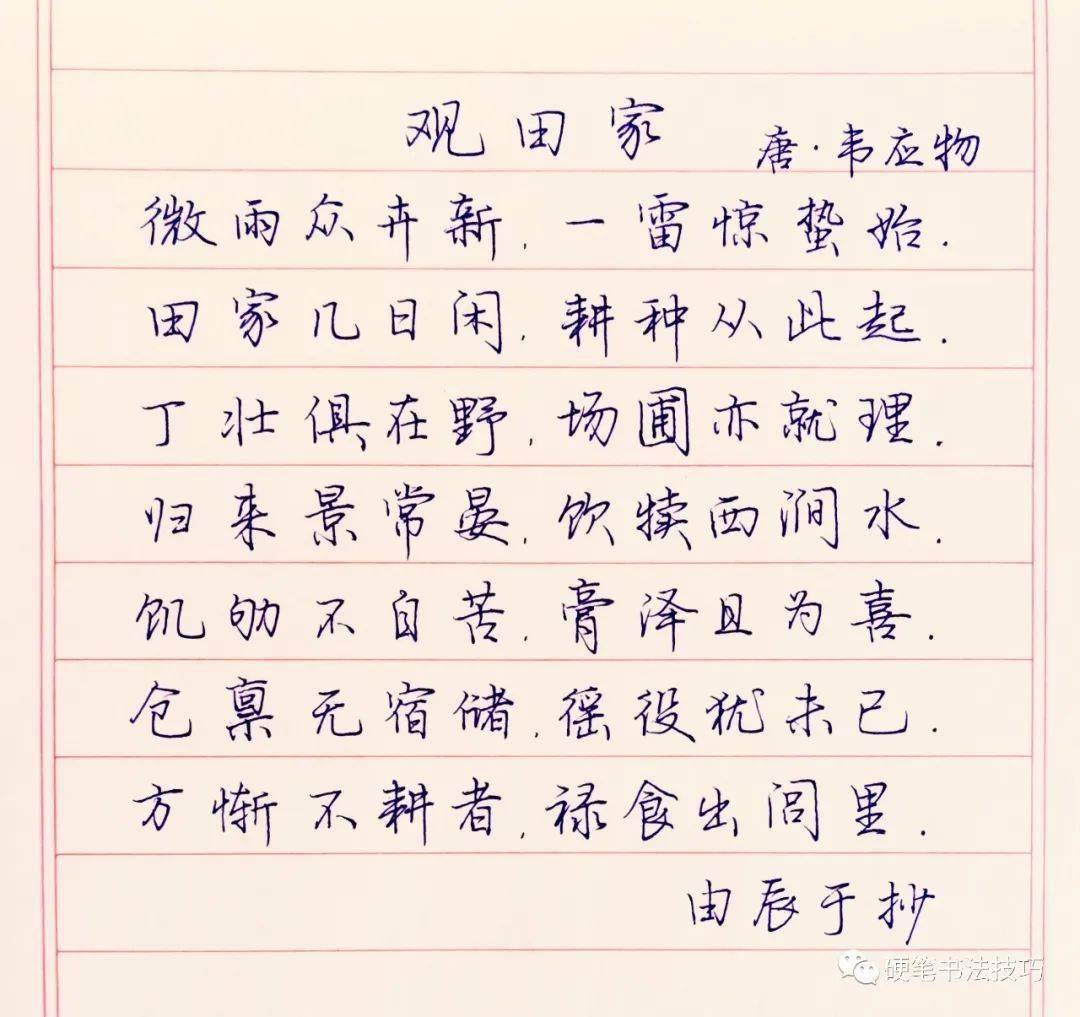 观田家
唐·韦应物
微雨众卉新,一雷惊蛰始.
田家几日闲,耕种从此起.
丁壮俱在野,场圃亦就理.
归来景常晏,饮犊西涧水.
饥劬不自苦,膏泽且为喜.
仓禀无宿储,徭役犹未已.
方惭不耕者,禄食出闾里.
由辰于抄
硬笔书法技巧